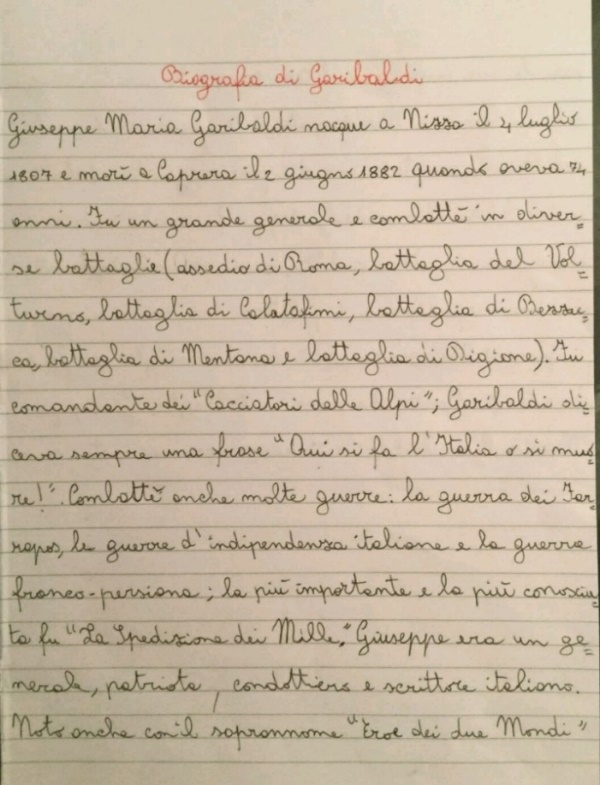 Biografia di Garibaldi
Giuseppe Maria Garibaldi nacque a Nizza il 4 luglio
1807 e morì a Caprera il 2 giugno 1882 quando aveva 74
anni. Fu un grande generale e combattè in diver=
se battaglie (assedio di Roma, battaglia del Vol=
turno, battaglia di Calatafimi, battaglia di Bezzec=
ca, battaglia di Mentana e battaglia di Digione). Fu
comandante dei "Cacciatori delle Alpi"; Garibaldi di=
ceva sempre una frase "Qui si fa l'Italia o si muo=
re!". Combattè anche molte guerre: la guerra dei Far=
rapos, le guerre d'indipendenza italiane e la guerra
franco-persiana; la più importante e la più conosciu=
ta fu "La Spedizione dei Mille." Giuseppe era un ge=
nerale, patriota, condottiero e scrittore italiano.
Noto anche con il soprannome "Eroe dei due Mondi"